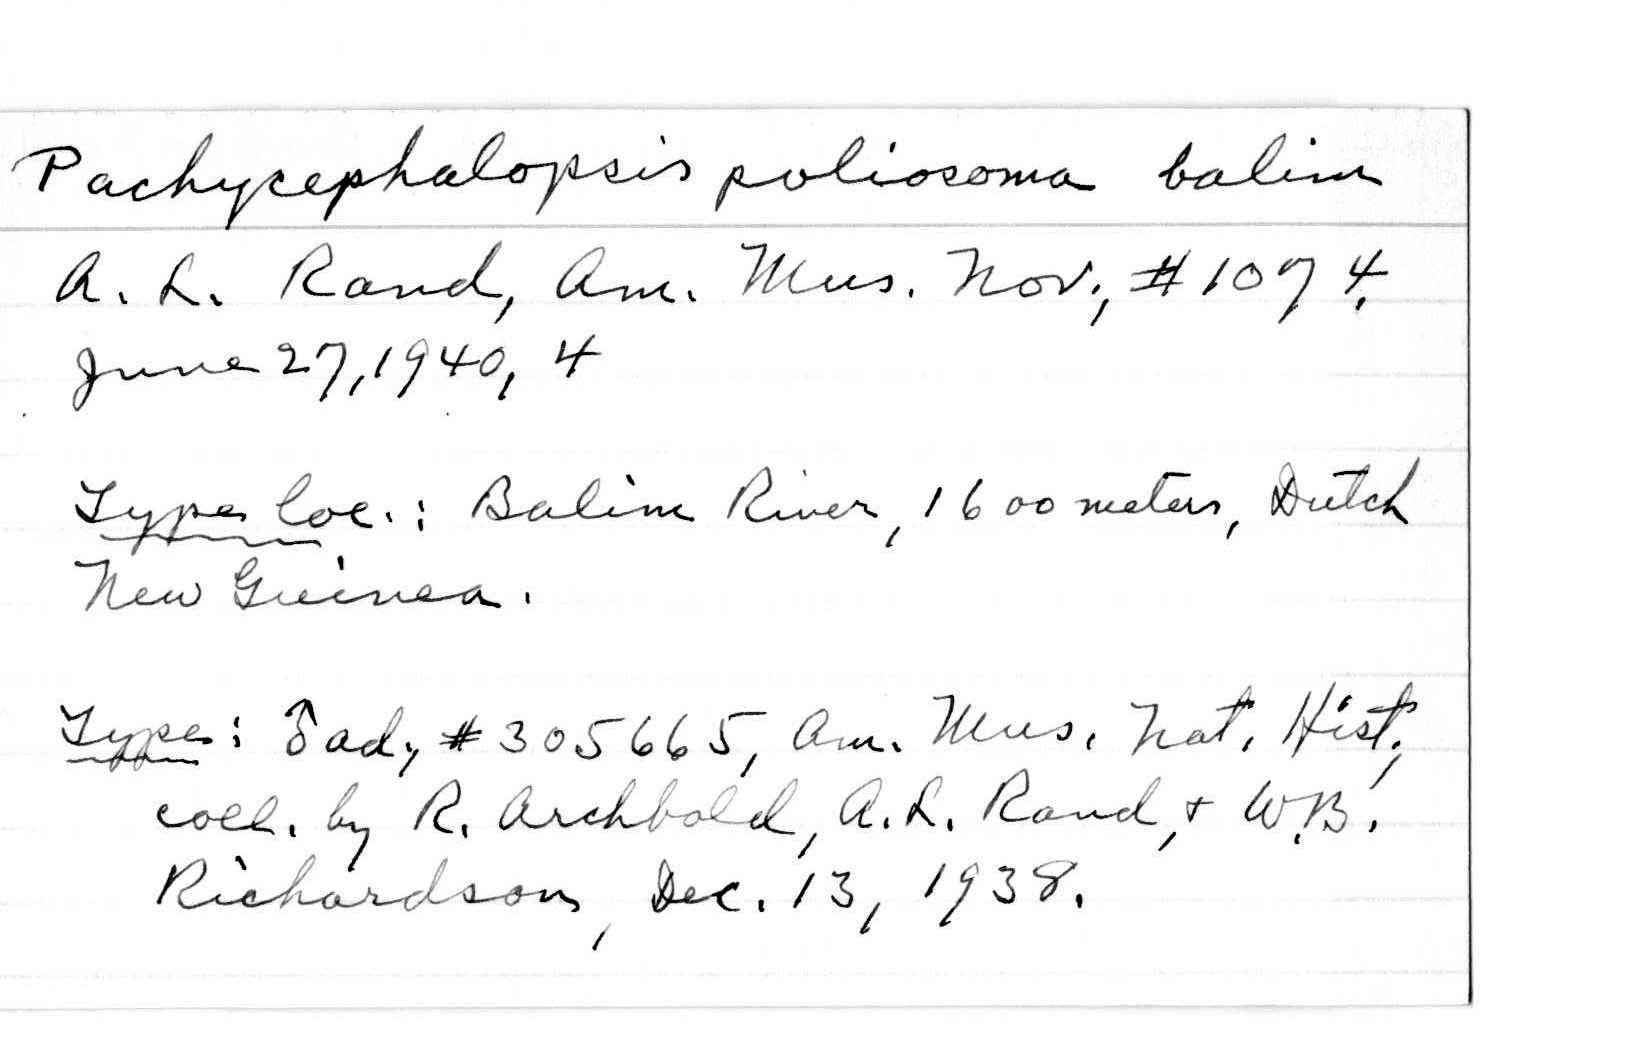 Pachycephalopsis poliosoma balim
A. L. Rand, Am. Mus. Nov., #1074,
June 27, 1940, 4
Type loc.: Balim River, 1600 meters, Dutch
New Guinea.
Type: ♂ ad, #305665, Am. Mus. Nat. Hist.,
coll. by R. Archbold, A. L. Rand, + W. B.
Richardson, Dec. 13, 1938.